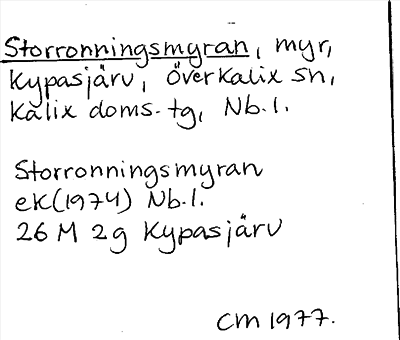 Storronningsmyran, myr,
Kypasjärv, Överkalix sn,
Kalix doms.tg, Nb.l.
Storronningsmyran
ek(1974) Nb.l.
26 M 2g Kypasjärv
CM 1977.